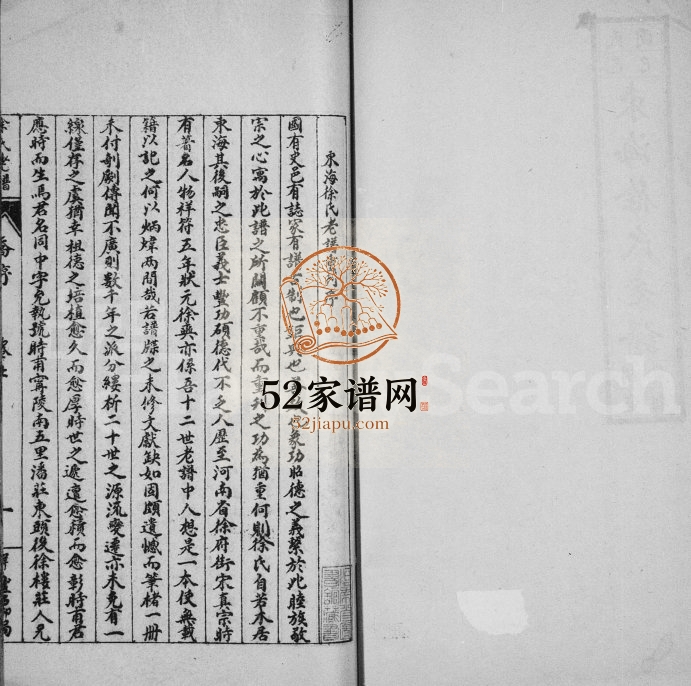 東海徐氏老譜重刊序
國有史邑有誌家有譜古制也
象功昭德之義繫於此睦族敬
宗之心寓於此譜之所關顧不重哉而重刊之功為猶重何則徐氏自若木居
東海其後嗣之忠臣義士豐功碩德代不乏人歷至河南省徐府街宋真宗時
有著名人物祥符五年狀元徐奭亦係吾十二世老譜中人想是一本使無載
籍以記之何以炳煒兩間哉若譜牒之未修文獻缺如固頗遺憾而筆楮一冊
未付剞劂傳聞不廣則數千年之派分縷析二十世之源流變遷亦未免有一
線僅存之虞猶幸祖德之培植愈久而愈厚時世之遞遭愈積而愈彰時甫君
應時而生焉君名同中字允執號時甫寗陵南五里潘莊東頭後徐樓莊人兄
徐氏老譜
序
一
52家谱网
52jiapu.com
Search